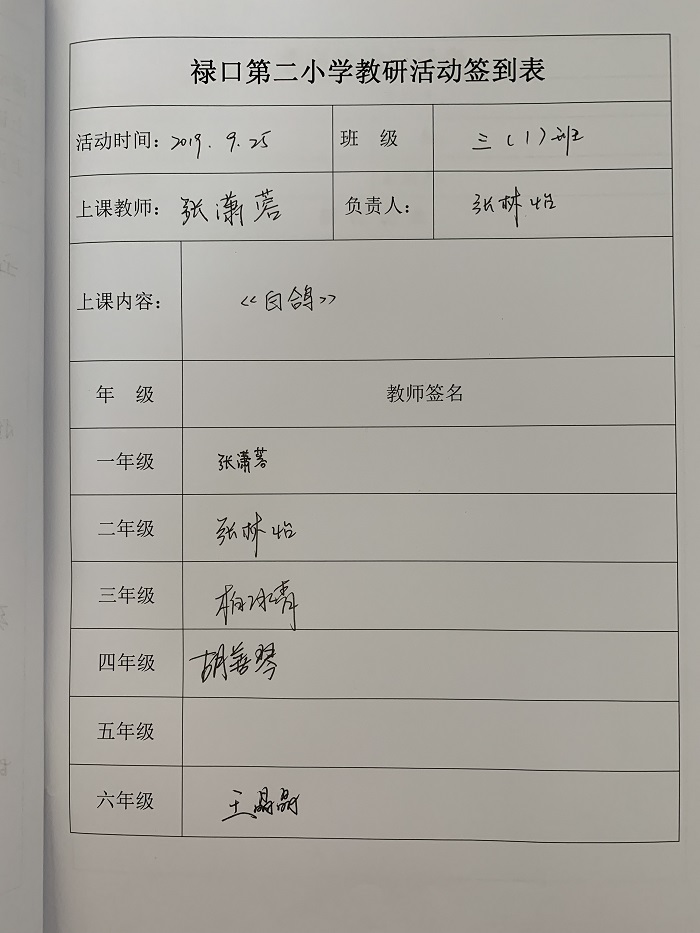 禄口第二小学教研活动签到表
活动时间：2019.9.25 班 级 三（1）班
上课教师：张潇蓉 负责人：张林怡
上课内容：《白鸽》
年 级 教师签名
一年级 张潇蓉
二年级 张林怡
三年级 柏冰青
四年级 胡善琴
五年级
六年级 王晶晶